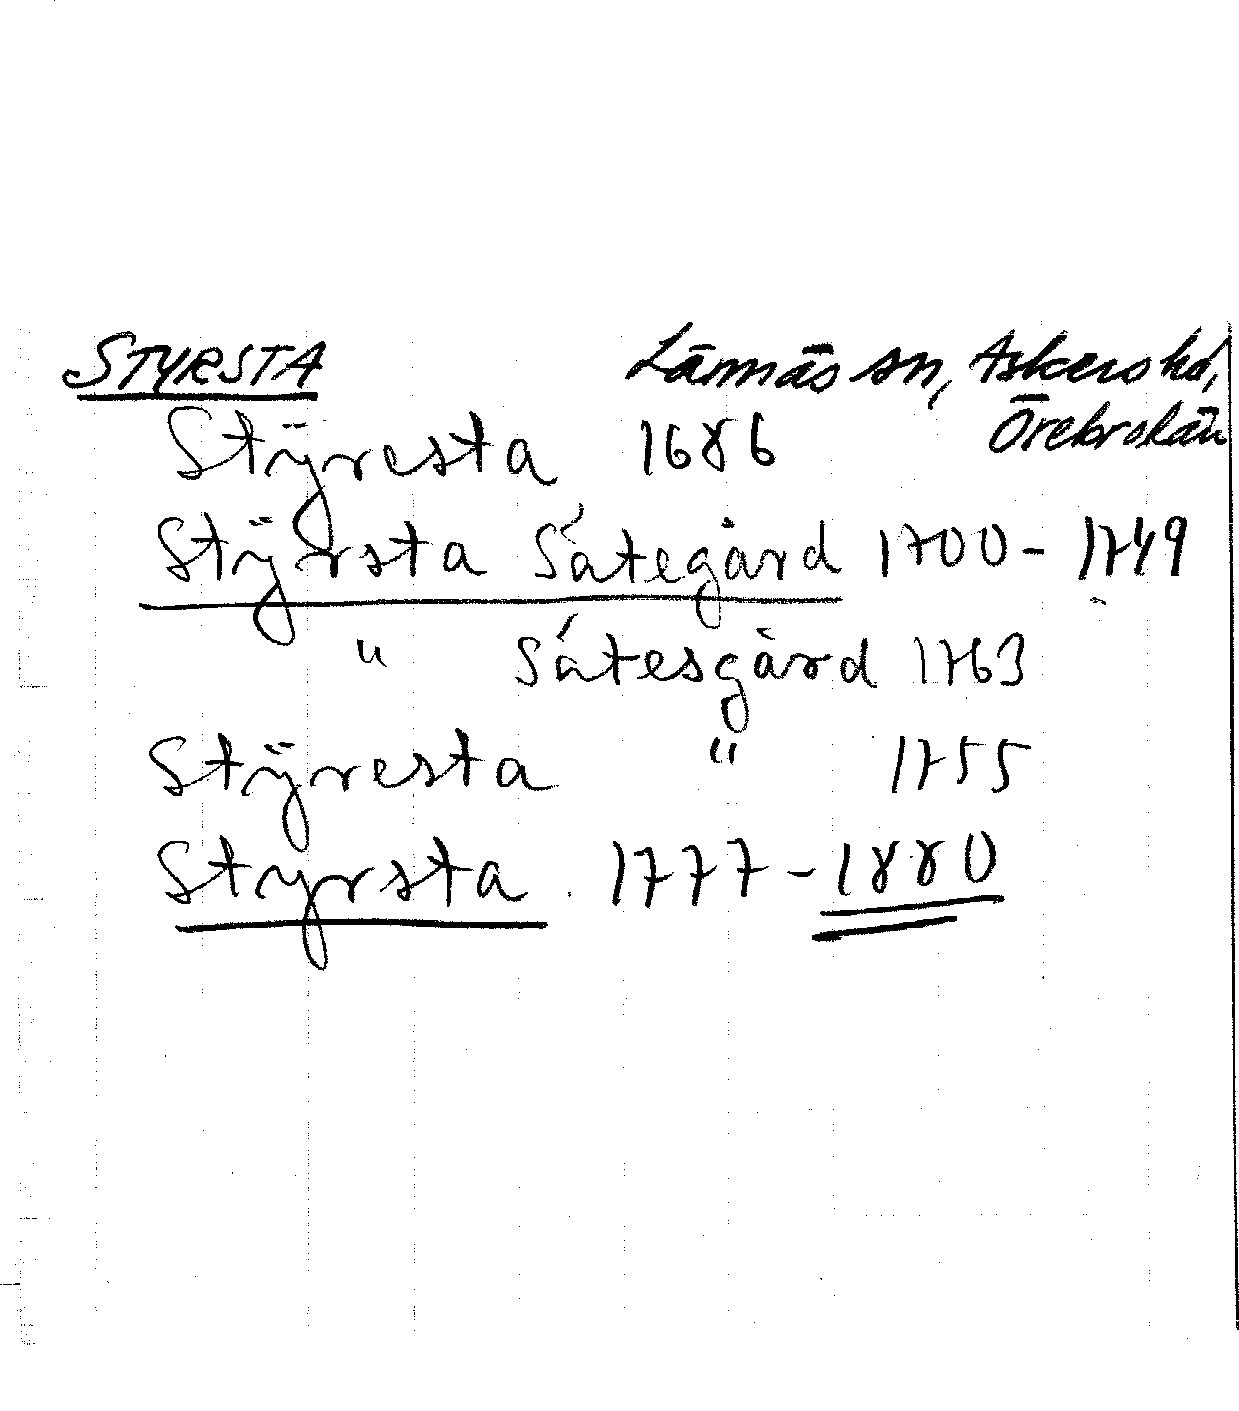 STYRSTA Lännäs sn, Askers hd,
Örebro län
Stÿresta 1686
Stÿrsta Sátegård 1700 - 1749
" Sátesgård 1763
Stÿresta " 1755
Styrsta 1777 - 1880